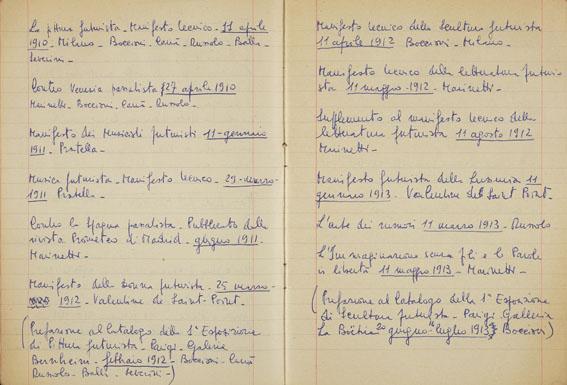 La pittura futurista - Manifesto tecnico - 11 aprile
1910 - Milano - Boccioni - Carrà - Russolo - Balla -
Severini -
Contro Venezia passatista 27 aprile 1910
Marinetti - Boccioni - Carrà - Russolo -
Manifesto dei Musicisti futuristi 11 - gennaio
1911 - Pratella -
Musica futurista - Manifesto tecnico - 29 - marzo -
1911 Pratella -
Contro la Spagna passatista - Pubblicato dalla
rivista Prometeo di Madrid - giugno 1911 -
Marinetti -
Manifesto della donna futurista - 25 marzo -
1912 - Valentine de Saint-Point -
(Prefazione al Catalogo della 1ª Esposizione
di Pittura futurista - Parigi - Galleria
Bernheim - febbraio 1912 - Boccioni - Carrà
Russolo - Balla - Severini -)
Manifesto tecnico della Scultura futurista
11 aprile 1912 Boccioni - Milano -
Manifesto tecnico della letteratura futuri-
sta 11 maggio - 1912 - Marinetti -
Supplemento al manifesto tecnico della
letteratura futurista 11 agosto 1912
Marinetti -
Manifesto futurista della Lussuria 11
gennaio 1913 - Valentine de Saint Point -
L'arte dei rumori 11 marzo 1913 - Russolo
L'Immaginazione senza fili e le Parole
in libertà 11 maggio 1913 - Marinetti -
(Prefazione al Catalogo della 1ª Esposizione
di Scultura futurista - Parigi - Galleria
La Boëtie 20 giugno - 16 luglio 1913 Boccioni)